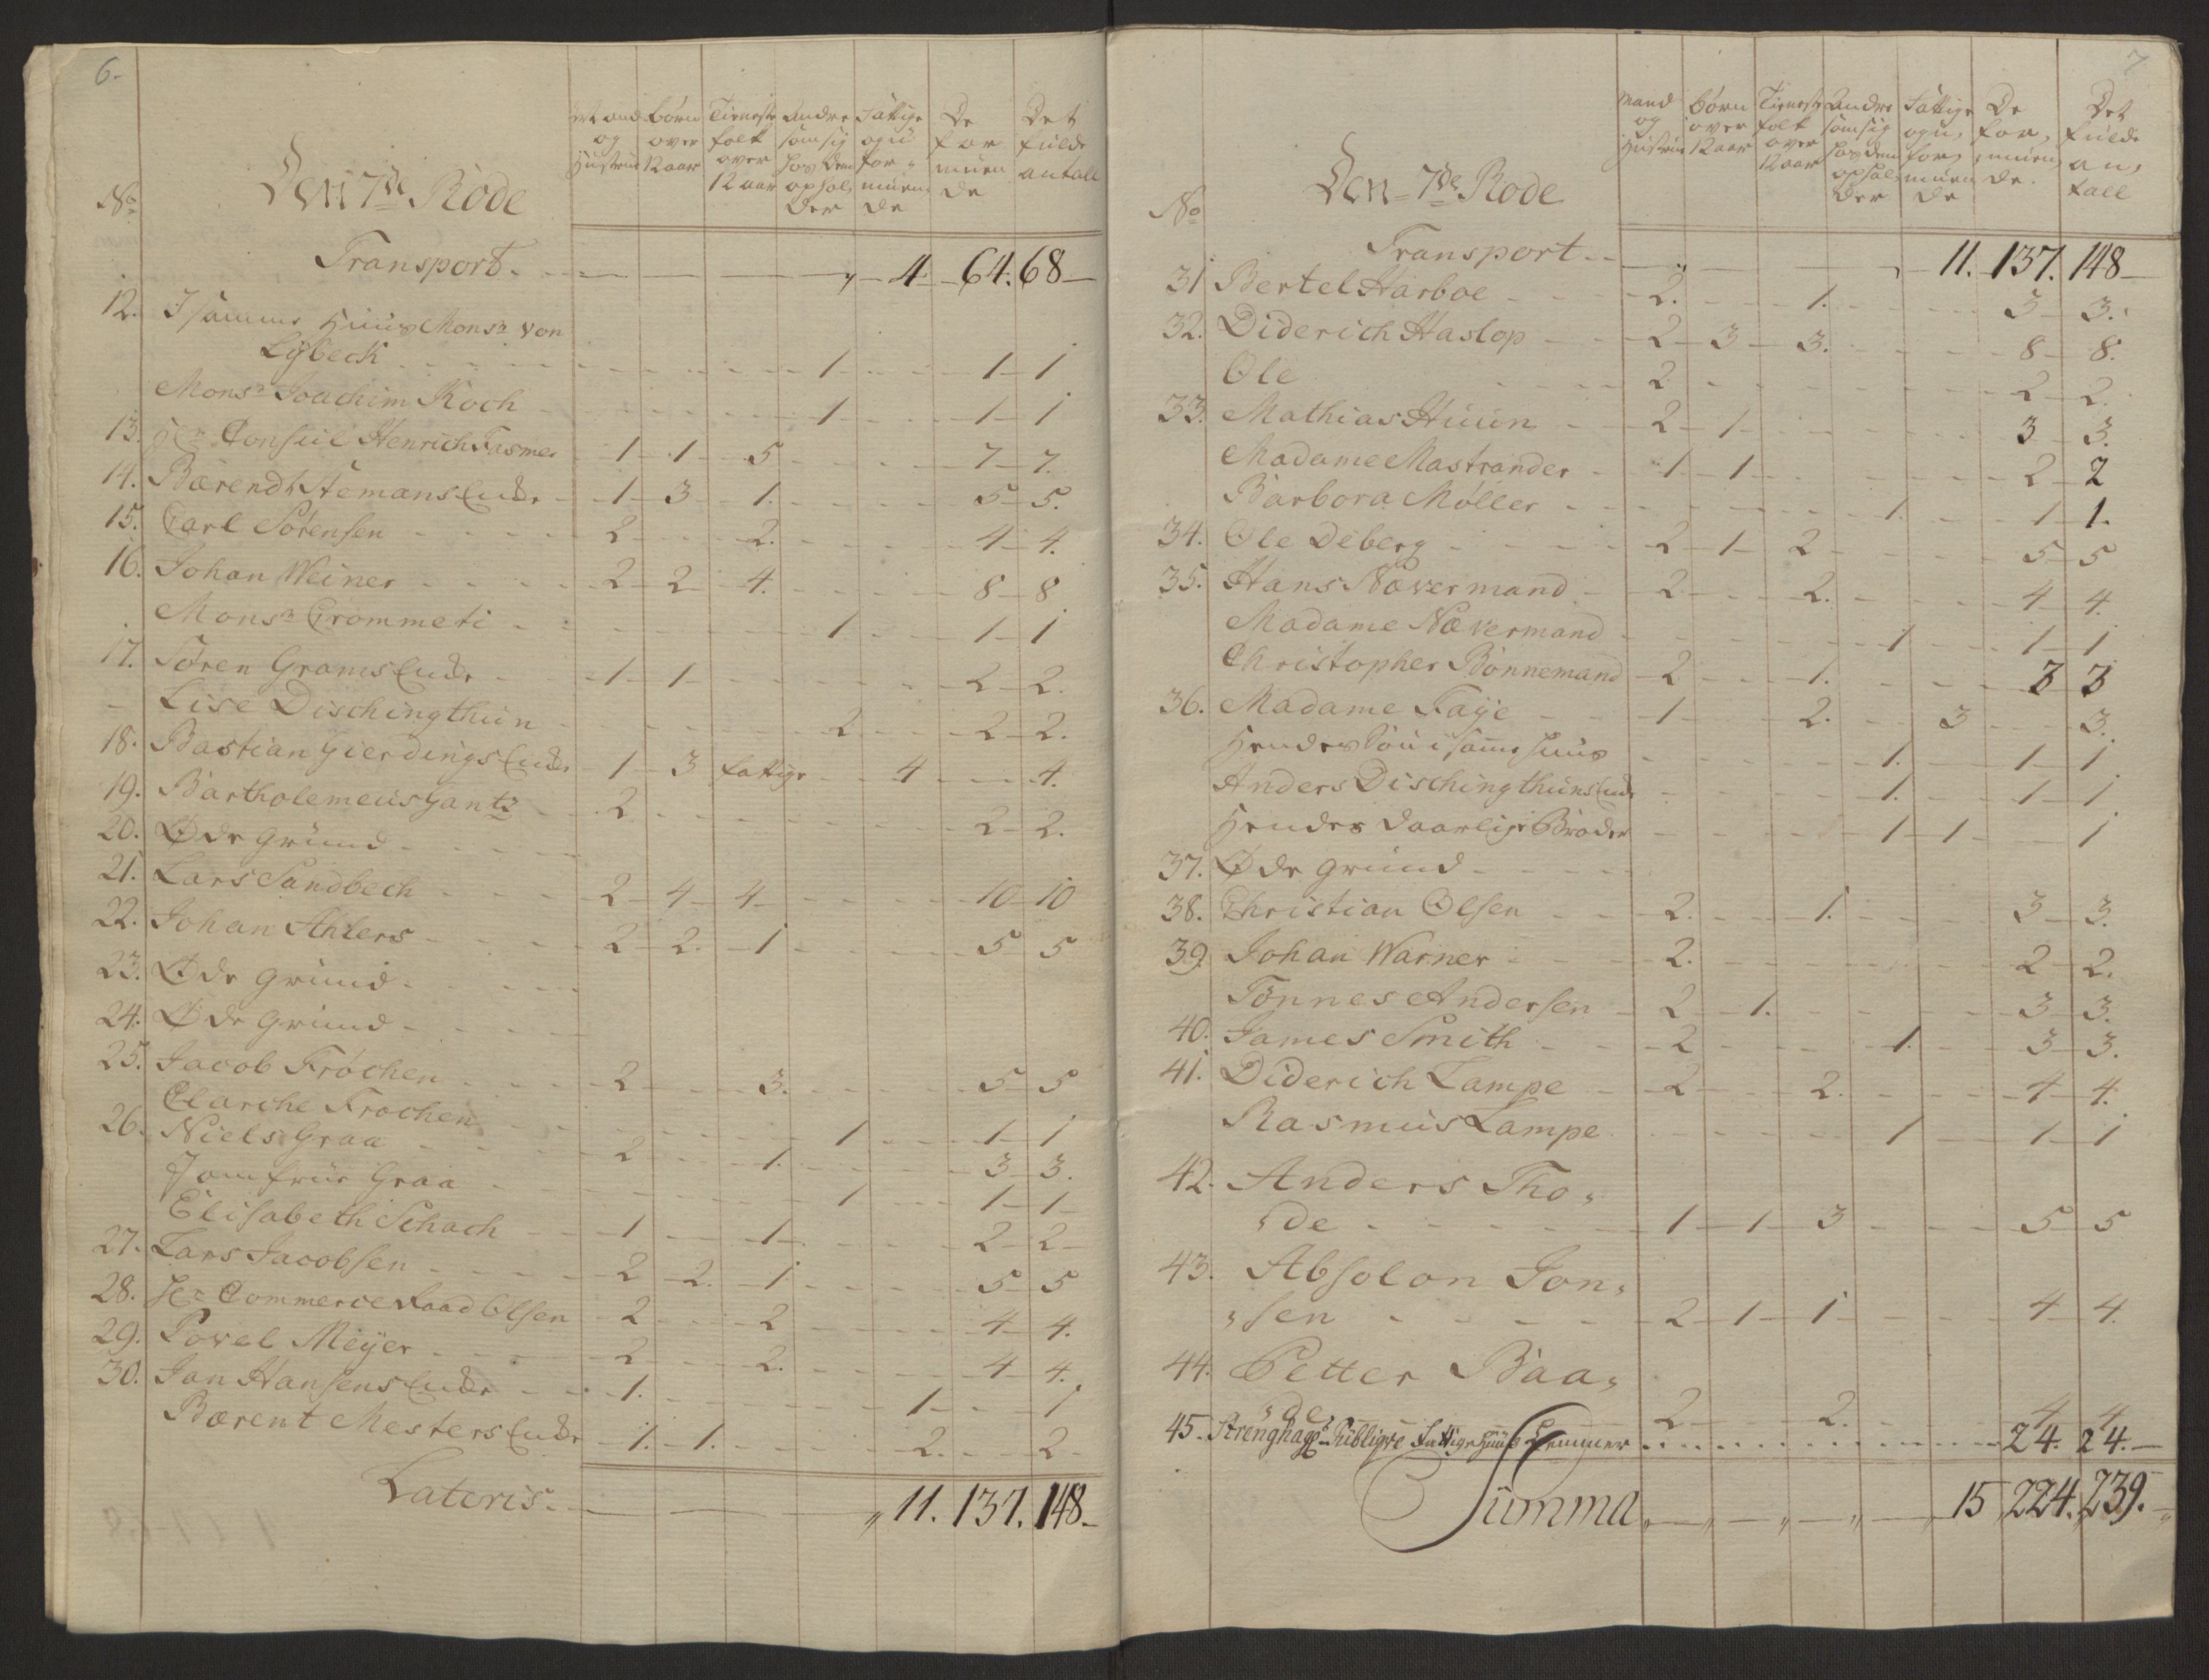 6.
No
Den 7de Rode
Mand og Hustrue
Børn over 12 aar
Tieneste folk over 12 aar
Andre som sig hos dem opholder
Fattige og uformuende
De formuende
Det fulde antall
Transport. 4. 64. 68
12. I samme Huus Monsr von
Lybeck 1 1 1
Monsr Joachim Koch 1 1 1
13. Hr Consul Henrich Fasmer 1 1 5 7 7.
14. Bærendt Stemans Encke 1 3 1. 5 5.
15. Carl Sørensen 2 2. 4 4.
16. Johan Weiner 2 2 4. 8 8
Monsr Crommeti 1 1 1
17. Søren Grams Encke 1 1 2 2.
Lise Dischingthun 2 2 2.
18. Bastian Gierdings Encke 1 3 fattige 4 4.
19. Bartholemeus Gantz 2 2 2.
20. Øde Grund
21. Lars Sandbech 2 4 4 10 10
22. Johan Ahlers 2 2. 1 5 5
23. Øde Grund
24. Øde Grund
25. Jacob Frøchen 2 3. 5 5
Clarche Frochen 1 1 1
26. Niels Graa 2 1. 3 3.
Jomfrue Graa 1 1 1
Elisabeth Schach 1 1 2 2
27. Lars Jacobsen 2 2. 1 5 5
28. Hr Commerce Raad Olsen 2 2 4 4.
29. Povel Meyer 2 2. 4 4.
30. Jan Hansens Encke 1. 1 1
Bærent Mesters Encke 1. 1. 2. 2
Lateris. 11. 137. 148.
7
No
Den 7de Rode
Mand og Hustrue
Børn over 12 aar
Tieneste folk over 12 aar
Andre som sig hos dem opholder
Fattige og uformuende
De formuende.
Det fulde antall
Transport 11. 137. 148
31 Bertel Harboe 2. 1. 3 3.
32. Diderich Haslop 2 3 3. 8 8.
Ole 2 2 2.
33. Mathias Huun 2 1 3 3.
Madame Mastrander 1 1 2 2
Barbora Møller 1. 1 1.
34. Ole Deberg 2 1 2 5 5
35. Hans Nævermand 2 2. 4 4.
Madame Nævermand 1 1 1
Christopher Bønnemand 2 1. 3 3
36. Madame Faÿe 1 2. 3 3.
Hendes Søn i samme Huus 1. 1 1
Anders Dischingthuns Encke 1. 1 1
Hendes daarlige Broder 1 1 1
37. Øde Grund
38. Christian Olsen 2. 1. 3 3.
39. Johan Warner 2. 2 2.
Tønnes Andersen 2 1. 3 3.
40. James Smith 2 1. 3 3.
41. Diderich Lampe 2 2. 4 4.
Rasmus Lampe 1 1 1
42. Anders Tho,
,de 1 1 3 5 5
43. Absolon Jon,
,sen 2 1 1 4 4.
44. Petter Baa,
,de 2 2. 4 4
45. Strenghags Publique Fattighuus Lemmer 24. 24.
Summa 15 224. 239.